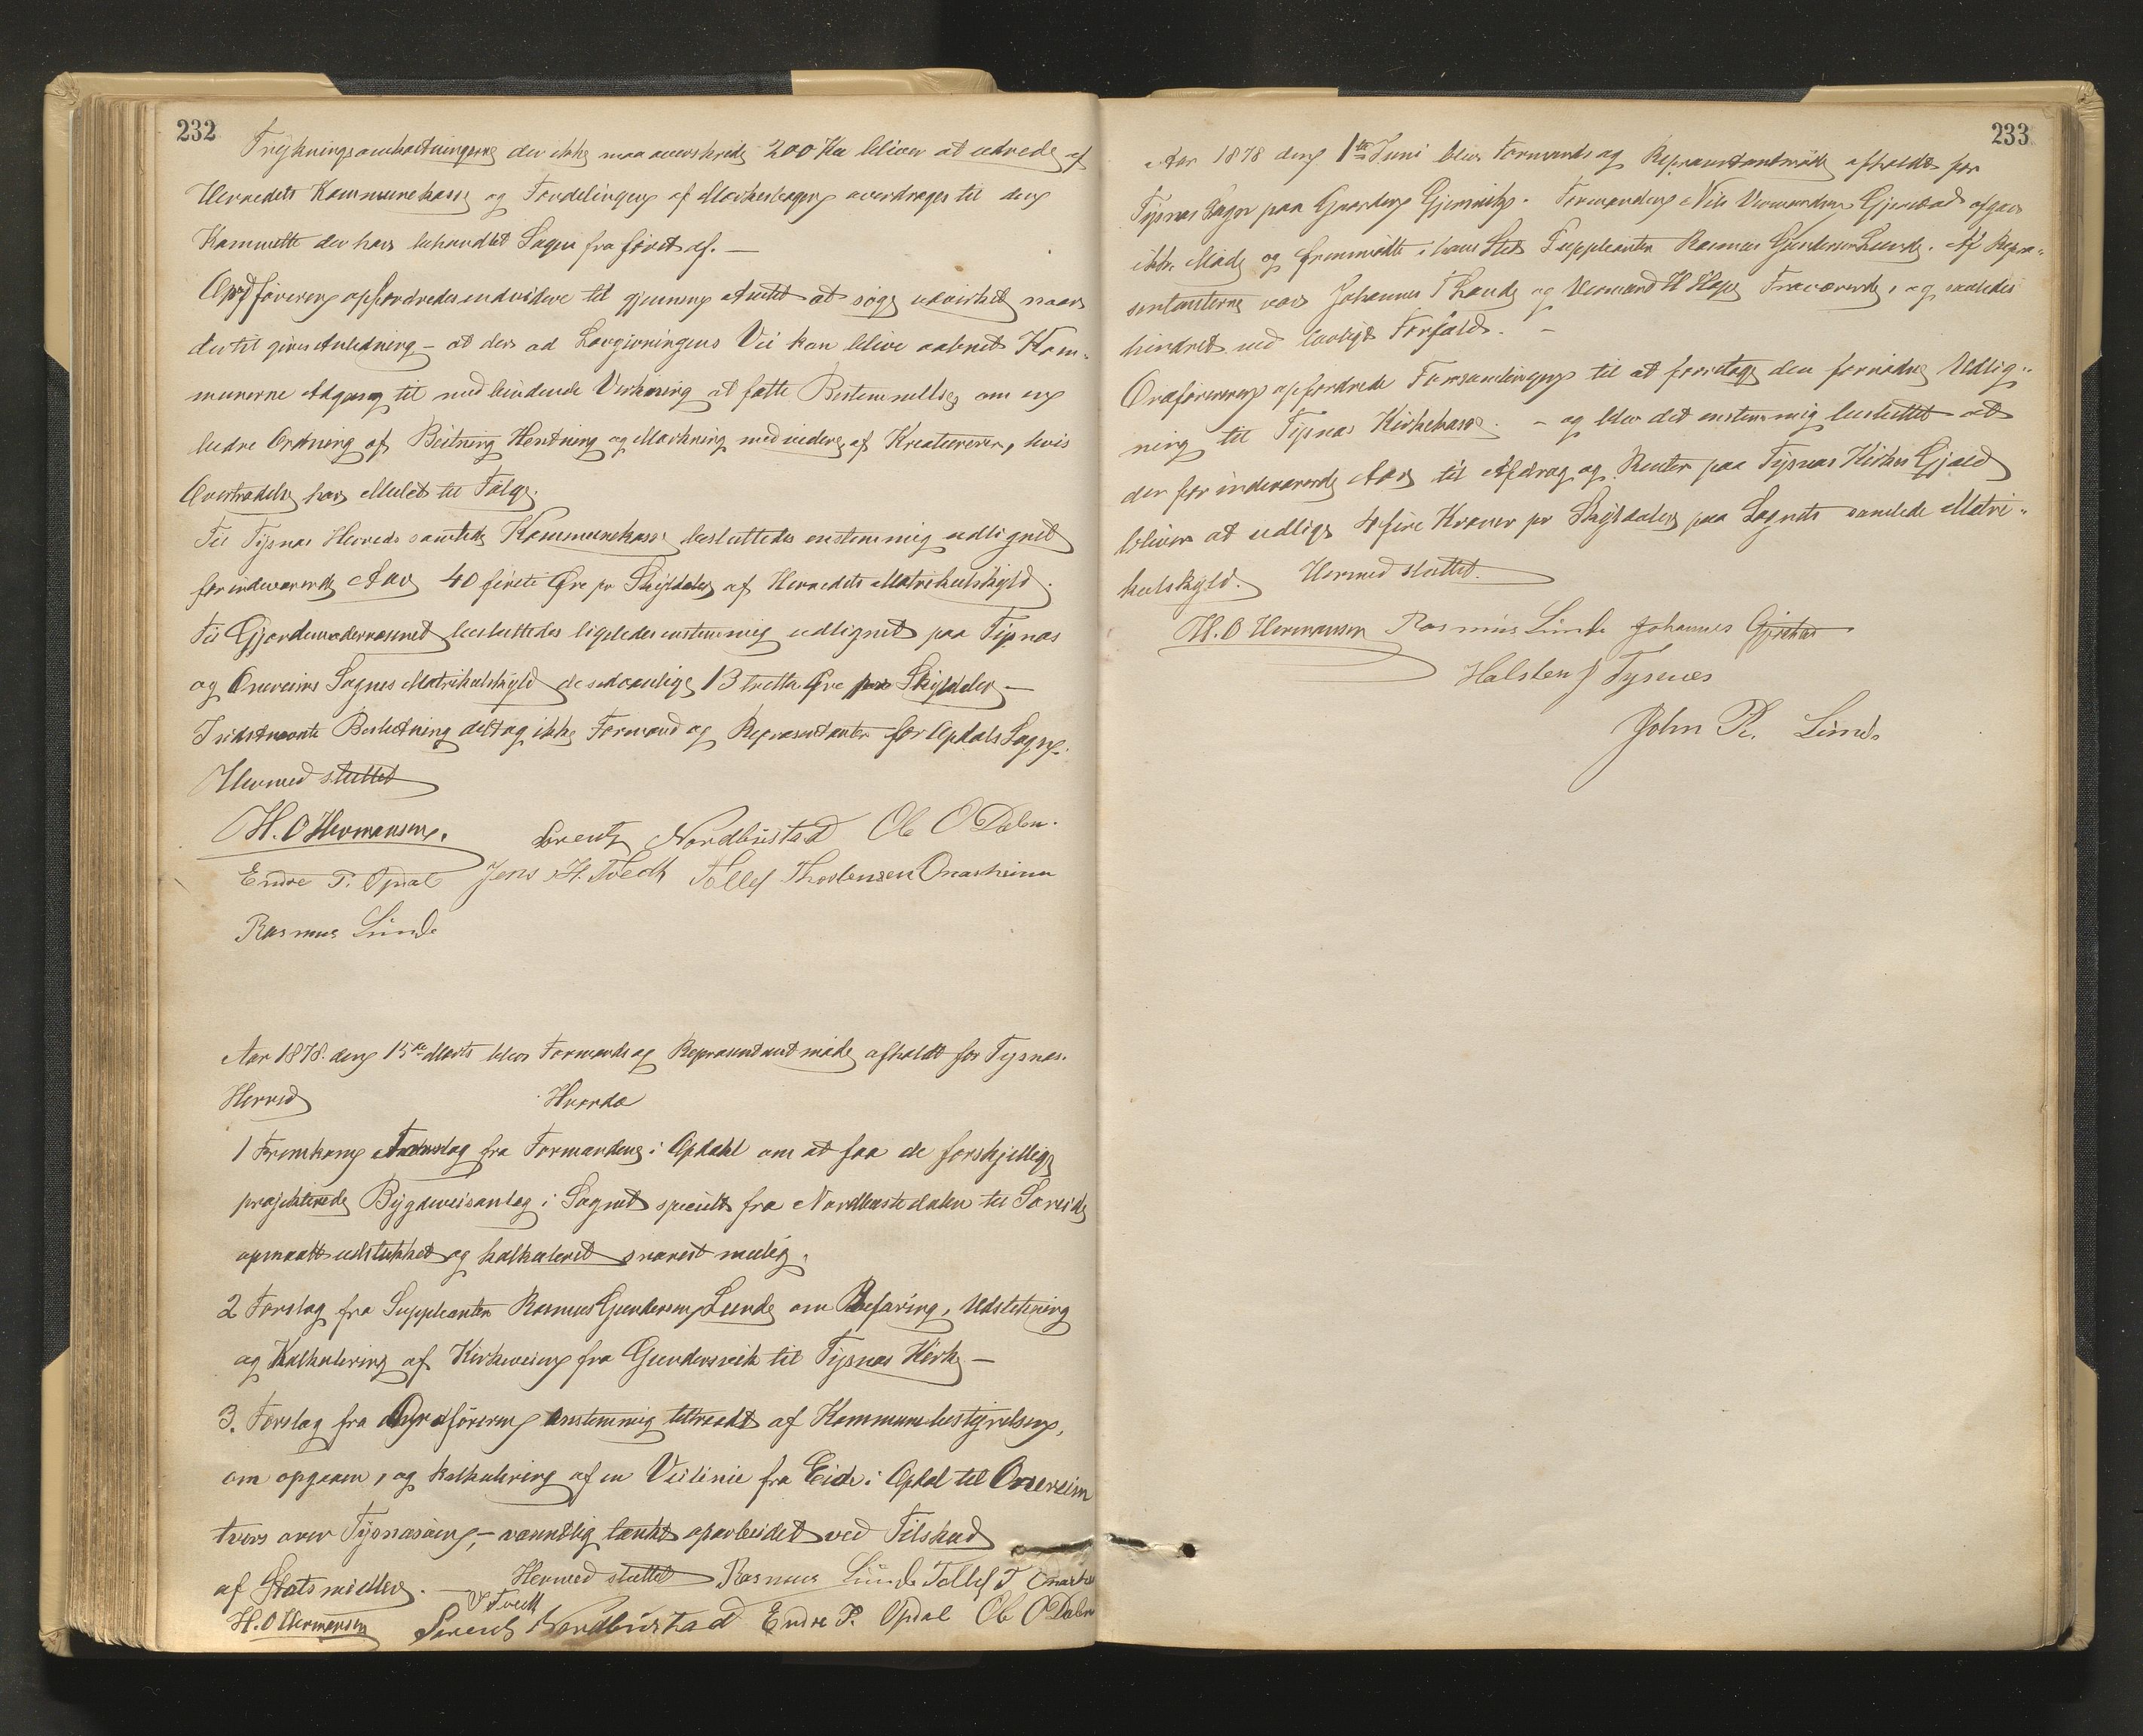 232
Trykningsomkostningerne der ikke maa overskride 200 Kr bliver at udrede af
Herredets Kommunekasse og Fordelingen af Mærkesbogen overdrages til den
Kommitte der har behandlet Sagen fra først af. —
Ordføreren opfordredes endvidere til gjennem Amtet at søge udvirket naar
dertil gives Anledning – at der ad Lovgivningens Vei kan blive aabnet Kom-
munerne Adgang til med bindende Virkning at fatte Bestemmelse om en
bedre Ordning af Beitning Hentning og Mærkning med videre af Kreaturerer, hvis
Overtrædelse har Mulct til Følge.
Til Tysnæs Herreds samtlede Kommunekasse besluttedes enstemmig udlignet
for indeværende Aar 40 fireti Øre pr Skylddaler af Herredets Matrikulskyld.
Til Gjordemodervæsenet besluttedes ligeledes enstemmig udlignet paa Tysnæs
og Onereims Sognes Matrikulskyld de sædvanlige 13 tretten Øre pr Skylddaler —
I sidstnævnte Beslutning deltog ikke Formand og Repræsentanter for Opdals Sogn.
Hermed sluttet
H. O Hermansen. Lorentz Nordbustad Ole O Dalen.
Endre P. Opdal Jens H. Tvedt Tollef Thorbensen Onarheim
Rasmus Lunde
Aar 1878. den 15de Marts blev Formands og Repræsentantmøde afholdt for Tysnæs.
Herred Hvorda
1 Fremkom Forslag fra Formanden i Opdahl om at faa de forskjellige
projekterede Bygdeveisanlæg i Sognet specielt fra Nordbustedalen til Søreide
opmaalt udstukket og kalkuleret snarest mulig.
2 Forslag fra Suppleanten Rasmus Gundersen Lunde om Befaring, Udstikning
og Kalkulering af Kirkeveien fra Gundersvik til Tysnæs Kirke —
3. Forslag fra Ordføreren enstemmig tiltraadt af Kommunebestyrelsen,
om opgaaen, og kalkulering af en Veilinie fra Eide i Opdal til Onereim
tvers over Tysnæsøen, – væsentlig tænkt oparbeidet ved Tilskud
af Statsmidler. — Hermed sluttet Rasmus Lunde Tollef T Onarhe
H. O Hermansen Tvedt Lorentz Nordbustad Endre P. Opdal Ole O Dalen
233
Aar 1878 den 1ste Juni blev Formands og Repræsentantmøde afholdt for
Tysnæs Sogn paa Gaarden Gjersvik. Formanden Nils Gjerstad afgav
ikke Møde og fremmødte i hans Sted Suppleanten Rasmus Gundersen Lunde. Af Repræ-
sentanterne var Johannes T Lande og Hermand H Hope Fraværende, og saaledes
hindret ved lovligt Forfald. –
Ordføreren opfordrede Forsamlingen til at foretage den fornødne Udlig-
ning til Tysnæs Kirkekasse. – og blev det enstemmig besluttet at
der for indeværende Aar til Afdrag og Renter paa Tysnæs Kirkes Gjæld
bliver at udligne 4 fire Kroner pr Skylddaler paa Sognets samlede Matri-
kulskyld. Hermed sluttet.
H. O Hermansen Rasmus Lunde Johannes
Halsten J Tysnes
John R. Lunde